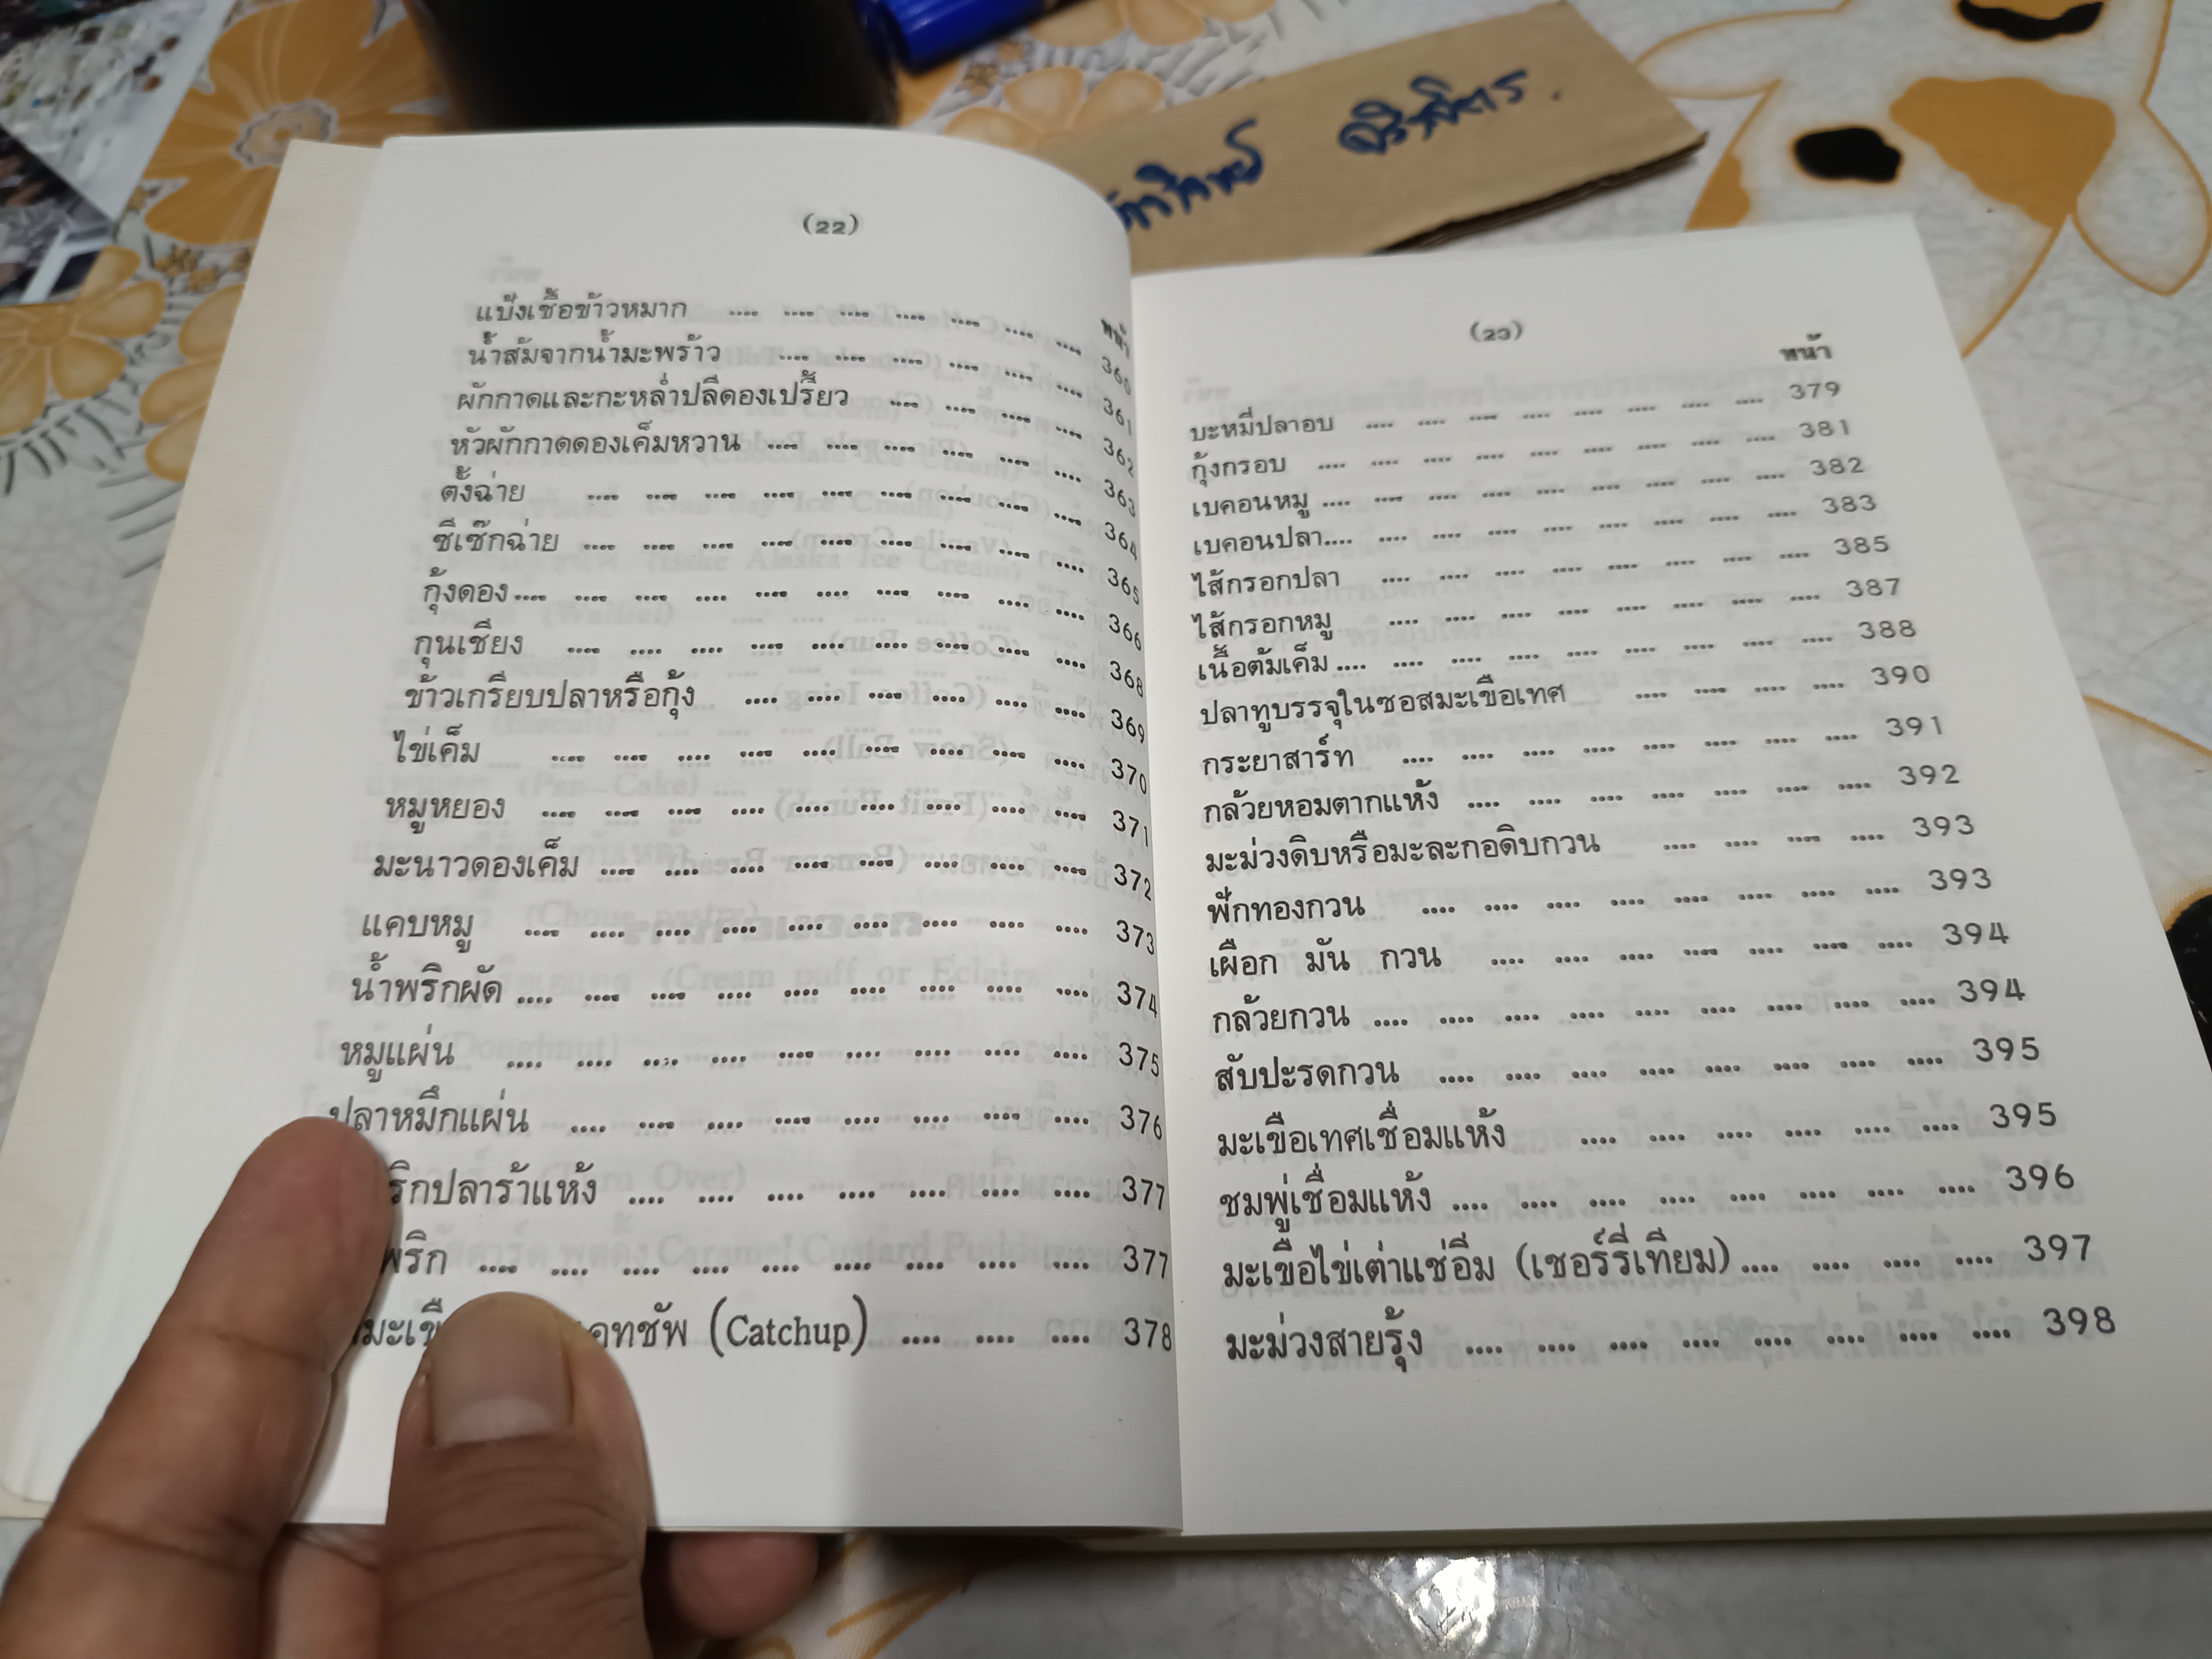 (22)
หน้า
แป้งเชื้อข้าวหมาก .... .... .... .... .... .... .... 360
น้ำส้มจากน้ำมะพร้าว .... .... .... .... .... .... 361
ผักกาดและกะหล่ำปลีดองเปรี้ยว .... .... .... .... 362
หัวผักกาดดองเค็มหวาน .... .... .... .... .... .... 363
ตั้งฉ่าย .... .... .... .... .... .... .... .... .... 364
ซีเซ๊กฉ่าย .... .... .... .... .... .... .... .... .... 365
กุ้งดอง .... .... .... .... .... .... .... .... .... .... 366
กุนเชียง .... .... .... .... .... .... .... .... .... 368
ข้าวเกรียบปลาหรือกุ้ง .... .... .... .... .... .... 369
ไข่เค็ม .... .... .... .... .... .... .... .... .... 370
หมูหยอง .... .... .... .... .... .... .... .... .... 371
มะนาวดองเค็ม .... .... .... .... .... .... .... .... 372
แคบหมู .... .... .... .... .... .... .... .... .... 373
น้ำพริกผัด .... .... .... .... .... .... .... .... .... 374
หมูแผ่น .... .... .... .... .... .... .... .... .... 375
ปลาหมึกแผ่น .... .... .... .... .... .... .... .... 376
ริกปลาร้าแห้ง .... .... .... .... .... .... .... 377
พริก .... .... .... .... .... .... .... .... .... 377
มะเขือ (Catchup) .... .... .... 378
(23)
หน้า
บะหมี่ปลาอบ .... .... .... .... .... .... .... .... 379
กุ้งกรอบ .... .... .... .... .... .... .... .... .... 381
เบคอนหมู .... .... .... .... .... .... .... .... .... 382
เบคอนปลา.... .... .... .... .... .... .... .... .... 383
ไส้กรอกปลา .... .... .... .... .... .... .... .... 385
ไส้กรอกหมู .... .... .... .... .... .... .... .... 387
เนื้อต้มเค็ม .... .... .... .... .... .... .... .... .... 388
ปลาทูบรรจุในซอสมะเขือเทศ .... .... .... .... 390
กระยาสาร์ท .... .... .... .... .... .... .... .... 391
กล้วยหอมตากแห้ง .... .... .... .... .... .... .... 392
มะม่วงดิบหรือมะละกอดิบกวน .... .... .... .... 393
ฟักทองกวน .... .... .... .... .... .... .... .... 393
เผือก มัน กวน .... .... .... .... .... .... .... 394
กล้วยกวน .... .... .... .... .... .... .... .... .... 394
สับปะรดกวน .... .... .... .... .... .... .... .... 395
มะเขือเทศเชื่อมแห้ง .... .... .... .... .... .... 395
ชมพู่เชื่อมแห้ง .... .... .... .... .... .... .... .... 396
มะเขือไข่เต่าแช่อิ่ม (เชอร์รี่เทียม) .... .... .... .... 397
มะม่วงสายรุ้ง .... .... .... .... .... .... .... .... 398